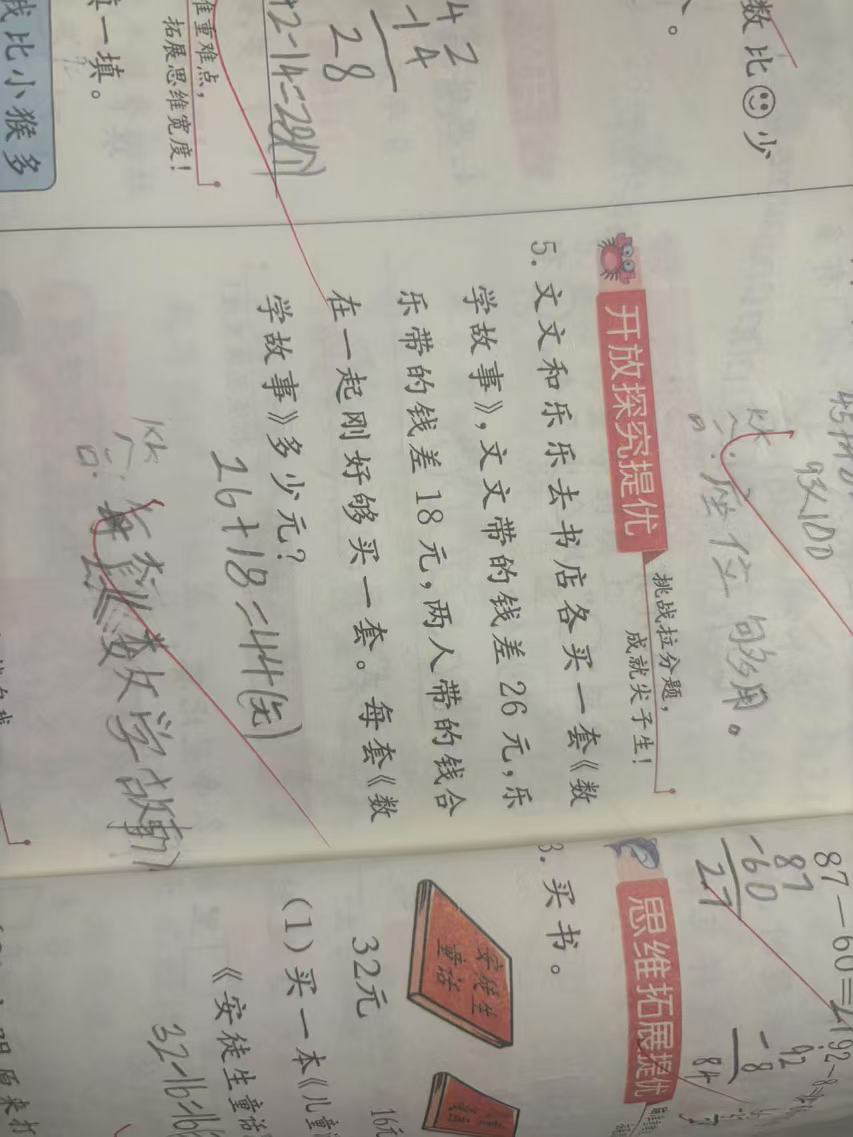 数比☺少
42
-14
28
42-14=28(个)
重难点，
拓展思维宽度！
填一填。
我比小猴多
93<100
座位够用。
开放探究提优
挑战拉分题，
成就尖子生！
5. 文文和乐乐去书店各买一套《数
学故事》，文文带的钱差 26 元，乐
乐带的钱差 18 元，两人带的钱合
在一起刚好够买一套。每套《数
学故事》多少元？
26+18=44(元)
数学故事
87-60=27
87
-60
27
92
-8
84
思维拓展提优
3. 买书。
安徒生
童话
32元
16元
(1) 买一本《儿童
《安徒生童话
32-16=16